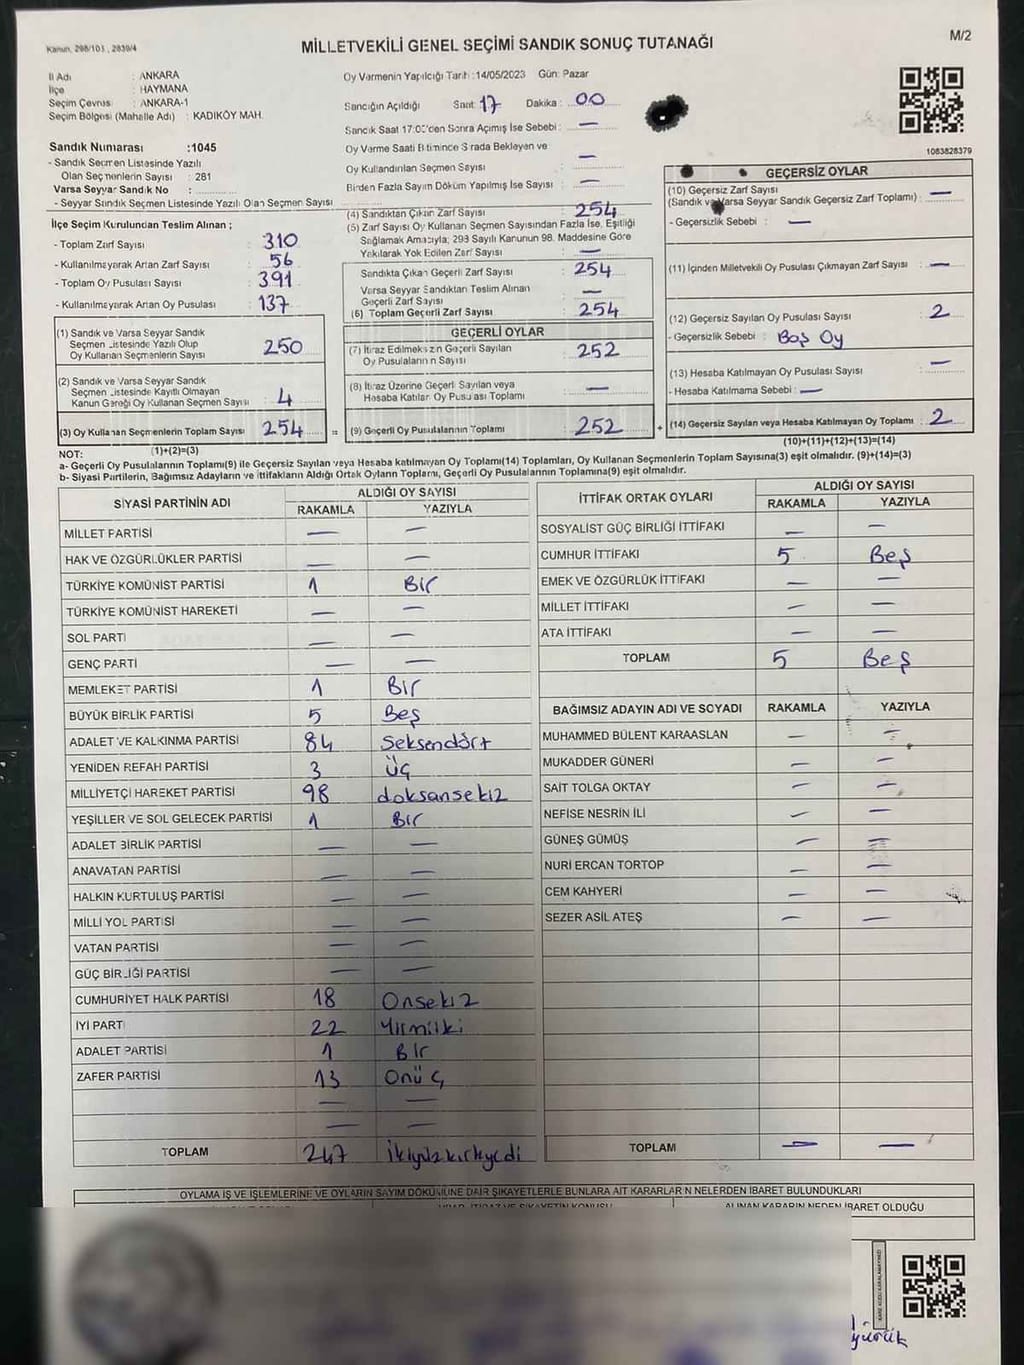 Kanun, 298/105, 2839/4
MİLLETVEKİLİ GENEL SEÇİMİ SANDIK SONUÇ TUTANAĞI
M/2
İl Adı : ANKARA
İlçe : HAYMANA
Seçim Çevresi : ANKARA-1
Seçim Bölgesi (Mahalle Adı) : KADIKÖY MAH.
Sandık Numarası :1045
- Sandık Seçmen Listesinde Yazılı
Olan Seçmenlerin Sayısı : 281
Varsa Seyyar Sandık No :
- Seyyar Sandık Seçmen Listesinde Yazılı Olan Seçmen Sayısı
Oy Vermenin Yapıldığı Tarih :14/05/2023 Gün: Pazar
Sandığın Açıldığı Saat: 17 Dakika : 00
Sandık Saat 17:00'den Sonra Açılmış İse Sebebi : —
Oy Verme Saati Bitiminde Sırada Bekleyen ve
Oy Kullandırılan Seçmen Sayısı : —
Birden Fazla Sayım Döküm Yapılmış İse Sayısı : —
1083828379
İlçe Seçim Kurulundan Teslim Alınan ;
- Toplam Zarf Sayısı : 310
- Kullanılmayarak Artan Zarf Sayısı : 56
- Toplam Oy Pusulası Sayısı : 391
- Kullanılmayarak Artan Oy Pusulası : 137
(1) Sandık ve Varsa Seyyar Sandık
Seçmen Listesinde Yazılı Olup
Oy Kullanan Seçmenlerin Sayısı 250
(2) Sandık ve Varsa Seyyar Sandık
Seçmen Listesinde Kayıtlı Olmayan
Kanun Gereği Oy Kullanan Seçmen Sayısı 4
(3) Oy Kullanan Seçmenlerin Toplam Sayısı 254 =
(1)+(2)=(3)
(4) Sandıktan Çıkan Zarf Sayısı 254
(5) Zarf Sayısı Oy Kullanan Seçmen Sayısından Fazla İse, Eşitliği
Sağlamak Amacıyla; 298 Sayılı Kanunun 98. Maddesine Göre
Yakılarak Yok Edilen Zarf Sayısı : —
Sandıkta Çıkan Geçerli Zarf Sayısı : 254
Varsa Seyyar Sandıktan Teslim Alınan
Geçerli Zarf Sayısı : —
(6) Toplam Geçerli Zarf Sayısı : 254
GEÇERLİ OYLAR
(7) İtiraz Edilmeksizin Geçerli Sayılan
Oy Pusulalarının Sayısı : 252
(8) İtiraz Üzerine Geçerli Sayılan veya
Hesaba Katılan Oy Pusulası Toplamı : —
(9) Geçerli Oy Pusulalarının Toplamı : 252 +
GEÇERSİZ OYLAR
(10) Geçersiz Zarf Sayısı
(Sandık ve Varsa Seyyar Sandık Geçersiz Zarf Toplamı) : —
- Geçersizlik Sebebi : —
(11) İçinden Milletvekili Oy Pusulası Çıkmayan Zarf Sayısı : —
(12) Geçersiz Sayılan Oy Pusulası Sayısı : 2
- Geçersizlik Sebebi : Boş Oy
(13) Hesaba Katılmayan Oy Pusulası Sayısı : —
- Hesaba Katılmama Sebebi : —
(14) Geçersiz Sayılan veya Hesaba Katılmayan Oy Toplamı : 2
(10)+(11)+(12)+(13)=(14)
NOT:
a- Geçerli Oy Pusulalarının Toplamı(9) ile Geçersiz Sayılan veya Hesaba katılmayan Oy Toplamı(14) Toplamları, Oy Kullanan Seçmenlerin Toplam Sayısına(3) eşit olmalıdır. (9)+(14)=(3)
b- Siyasi Partilerin, Bağımsız Adayların ve İttifakların Aldığı Ortak Oyların Toplamı, Geçerli Oy Pusulalarının Toplamına(9) eşit olmalıdır.
SİYASİ PARTİNİN ADI ALDIĞI OY SAYISI
RAKAMLA YAZIYLA
MİLLET PARTİSİ — —
HAK VE ÖZGÜRLÜKLER PARTİSİ — —
TÜRKİYE KOMÜNİST PARTİSİ 1 Bir
TÜRKİYE KOMÜNİST HAREKETİ — —
SOL PARTİ — —
GENÇ PARTİ — —
MEMLEKET PARTİSİ 1 Bir
BÜYÜK BİRLİK PARTİSİ 5 Beş
ADALET VE KALKINMA PARTİSİ 84 Seksendört
YENİDEN REFAH PARTİSİ 3 Üç
MİLLİYETÇİ HAREKET PARTİSİ 98 doksansekiz
YEŞİLLER VE SOL GELECEK PARTİSİ 1 Bir
ADALET BİRLİK PARTİSİ — —
ANAVATAN PARTİSİ — —
HALKIN KURTULUŞ PARTİSİ — —
MİLLİ YOL PARTİSİ — —
VATAN PARTİSİ — —
GÜÇ BİRLİĞİ PARTİSİ — —
CUMHURİYET HALK PARTİSİ 18 Onsekiz
İYİ PARTİ 22 Yirmiiki
ADALET PARTİSİ 1 Bir
ZAFER PARTİSİ 13 Onüç
— —
— —
TOPLAM 247 İkiyüzkırkyedi
İTTİFAK ORTAK OYLARI ALDIĞI OY SAYISI
RAKAMLA YAZIYLA
SOSYALİST GÜÇ BİRLİĞİ İTTİFAKI — —
CUMHUR İTTİFAKI 5 Beş
EMEK VE ÖZGÜRLÜK İTTİFAKI — —
MİLLET İTTİFAKI — —
ATA İTTİFAKI — —
TOPLAM 5 Beş
BAĞIMSIZ ADAYIN ADI VE SOYADI RAKAMLA YAZIYLA
MUHAMMED BÜLENT KARAASLAN — —
MUKADDER GÜNERİ — —
SAİT TOLGA OKTAY — —
NEFİSE NESRİN İLİ — —
GÜNEŞ GÜMÜŞ — —
NURİ ERCAN TORTOP — —
CEM KAHYERİ — —
SEZER ASİL ATEŞ — —
TOPLAM — —
OYLAMA İŞ VE İŞLEMLERİNE VE OYLARIN SAYIM DÖKÜMÜNE DAİR ŞİKAYETLERLE BUNLARA AİT KARARLARIN NELERDEN İBARET BULUNDUKLARI
ALINAN KARARIN NEDEN İBARET OLDUĞU